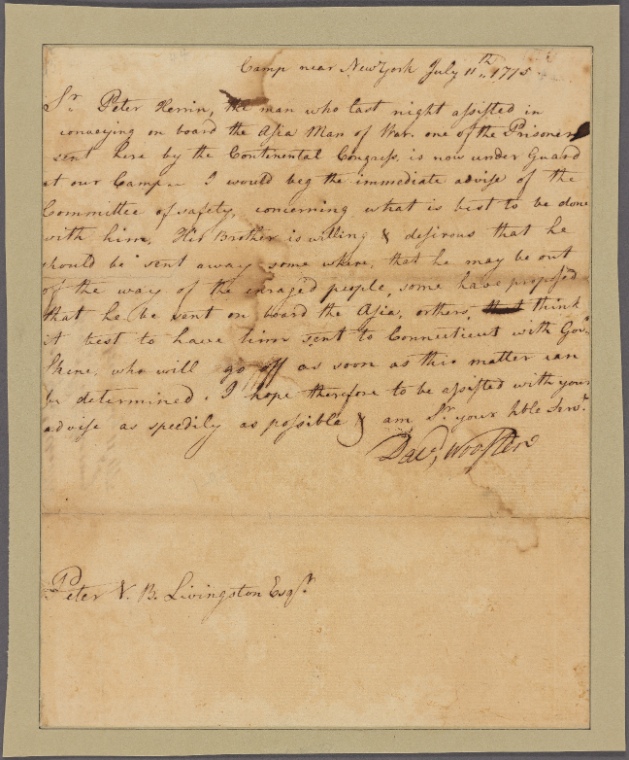 Camp near NewYork July 11th. 1775
Sr. Peter Herrin, the man who last night assisted in
conveying on board the Asia Man of War, one of the Prisoners
sent here by the Continental Congress, is now under Guard
at our Camp. I would beg the immediate advise of the
Committee of safety, concerning what is best to be done
with him. His Brother is willing & desirous that he
should be sent away some where, that he may be out
of the way of the enraged people, some have proposed
that he be sent on board the Asia, orthers, think
it best to have him sent to Connecticut with Govr.
Skene, who will go off as soon as this matter can
be determined. I hope therefore to be assisted with your
advise as speedily as possible & am Sr. your hble Servt.
Davd. Wooster
Peter V. B. Livingston Esqr.